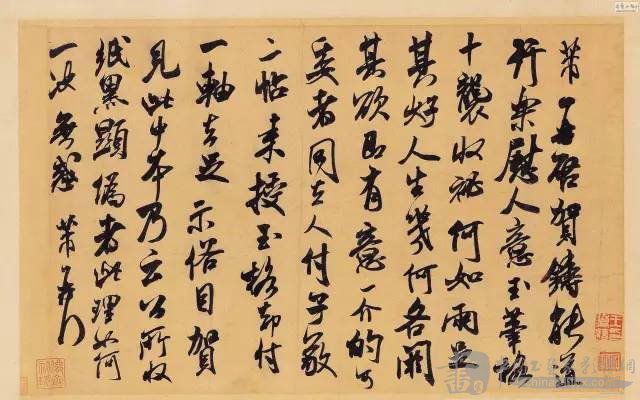 芾再啓賀鑄能道
行樂慰人意玉筆格
十襲收祕何如兩足
其好人生幾何各闊
其欲即有意一介的可
委者同去人付子敬
二帖來授玉格却付
一軸去足示俗目賀
見此中本乃云公所收
紙黑顯偽者此理如何
一決無惑 芾再